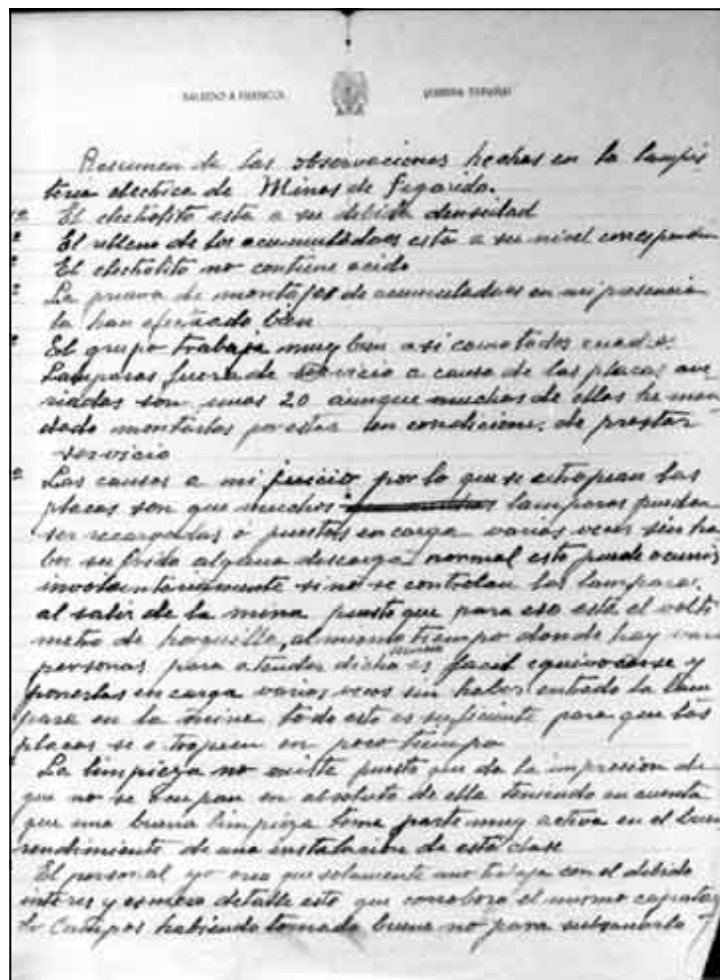 SALUDO A FRANCO! ¡ARRIBA ESPAÑA!
Resumen de las observaciones hechas en la lampis
teria electrica de Minas de Figaredo.
1º El electrolito esta a su debida densidad
º El relleno de los acumuladores esta a su nivel
º El electrolito no contiene acido
º La prueva de montajes de acumuladores en mi presencia
la han efectuado bien
º El grupo trabaja muy bien asi como todos
Lamparas fuera de servicio a causa de las placas ave
riadas son unas 20 aunque muchas de ellas he man
dado montarlas por estar en condiciones de prestar
servicio
º Las causas a mi juicio por lo que se estropean las
placas son que muchas lamparas puedan
ser recargadas ó puestas en carga varias veces sin ha
ber sufrido alguna descarga normal esto puede ocurrir
involuntariamente si no se controlan las lamparas
al salir de la mina puesto que para eso está el volti
metro de horquilla, al mismo tiempo donde hay varias
personas para atender dicho es facil equivocarse y
ponerlas en carga varias veces sin haber entrado la lam
para en la mina todo esto es suficiente para que las
placas se estropeen en poco tiempo
La limpieza no existe puesto que da la impresion de
que no se ocupan en absoluto de ella teniendo en cuenta
que una buena limpieza toma parte muy activa en el buen
rendimiento de una instalacion de esta clase
El personal yo creo que solamente uno trabaja con el debido
interes y esmero detalle este que corrobora el mismo capataz
Sr Campos habiendo tomado buena no para subsanarlo